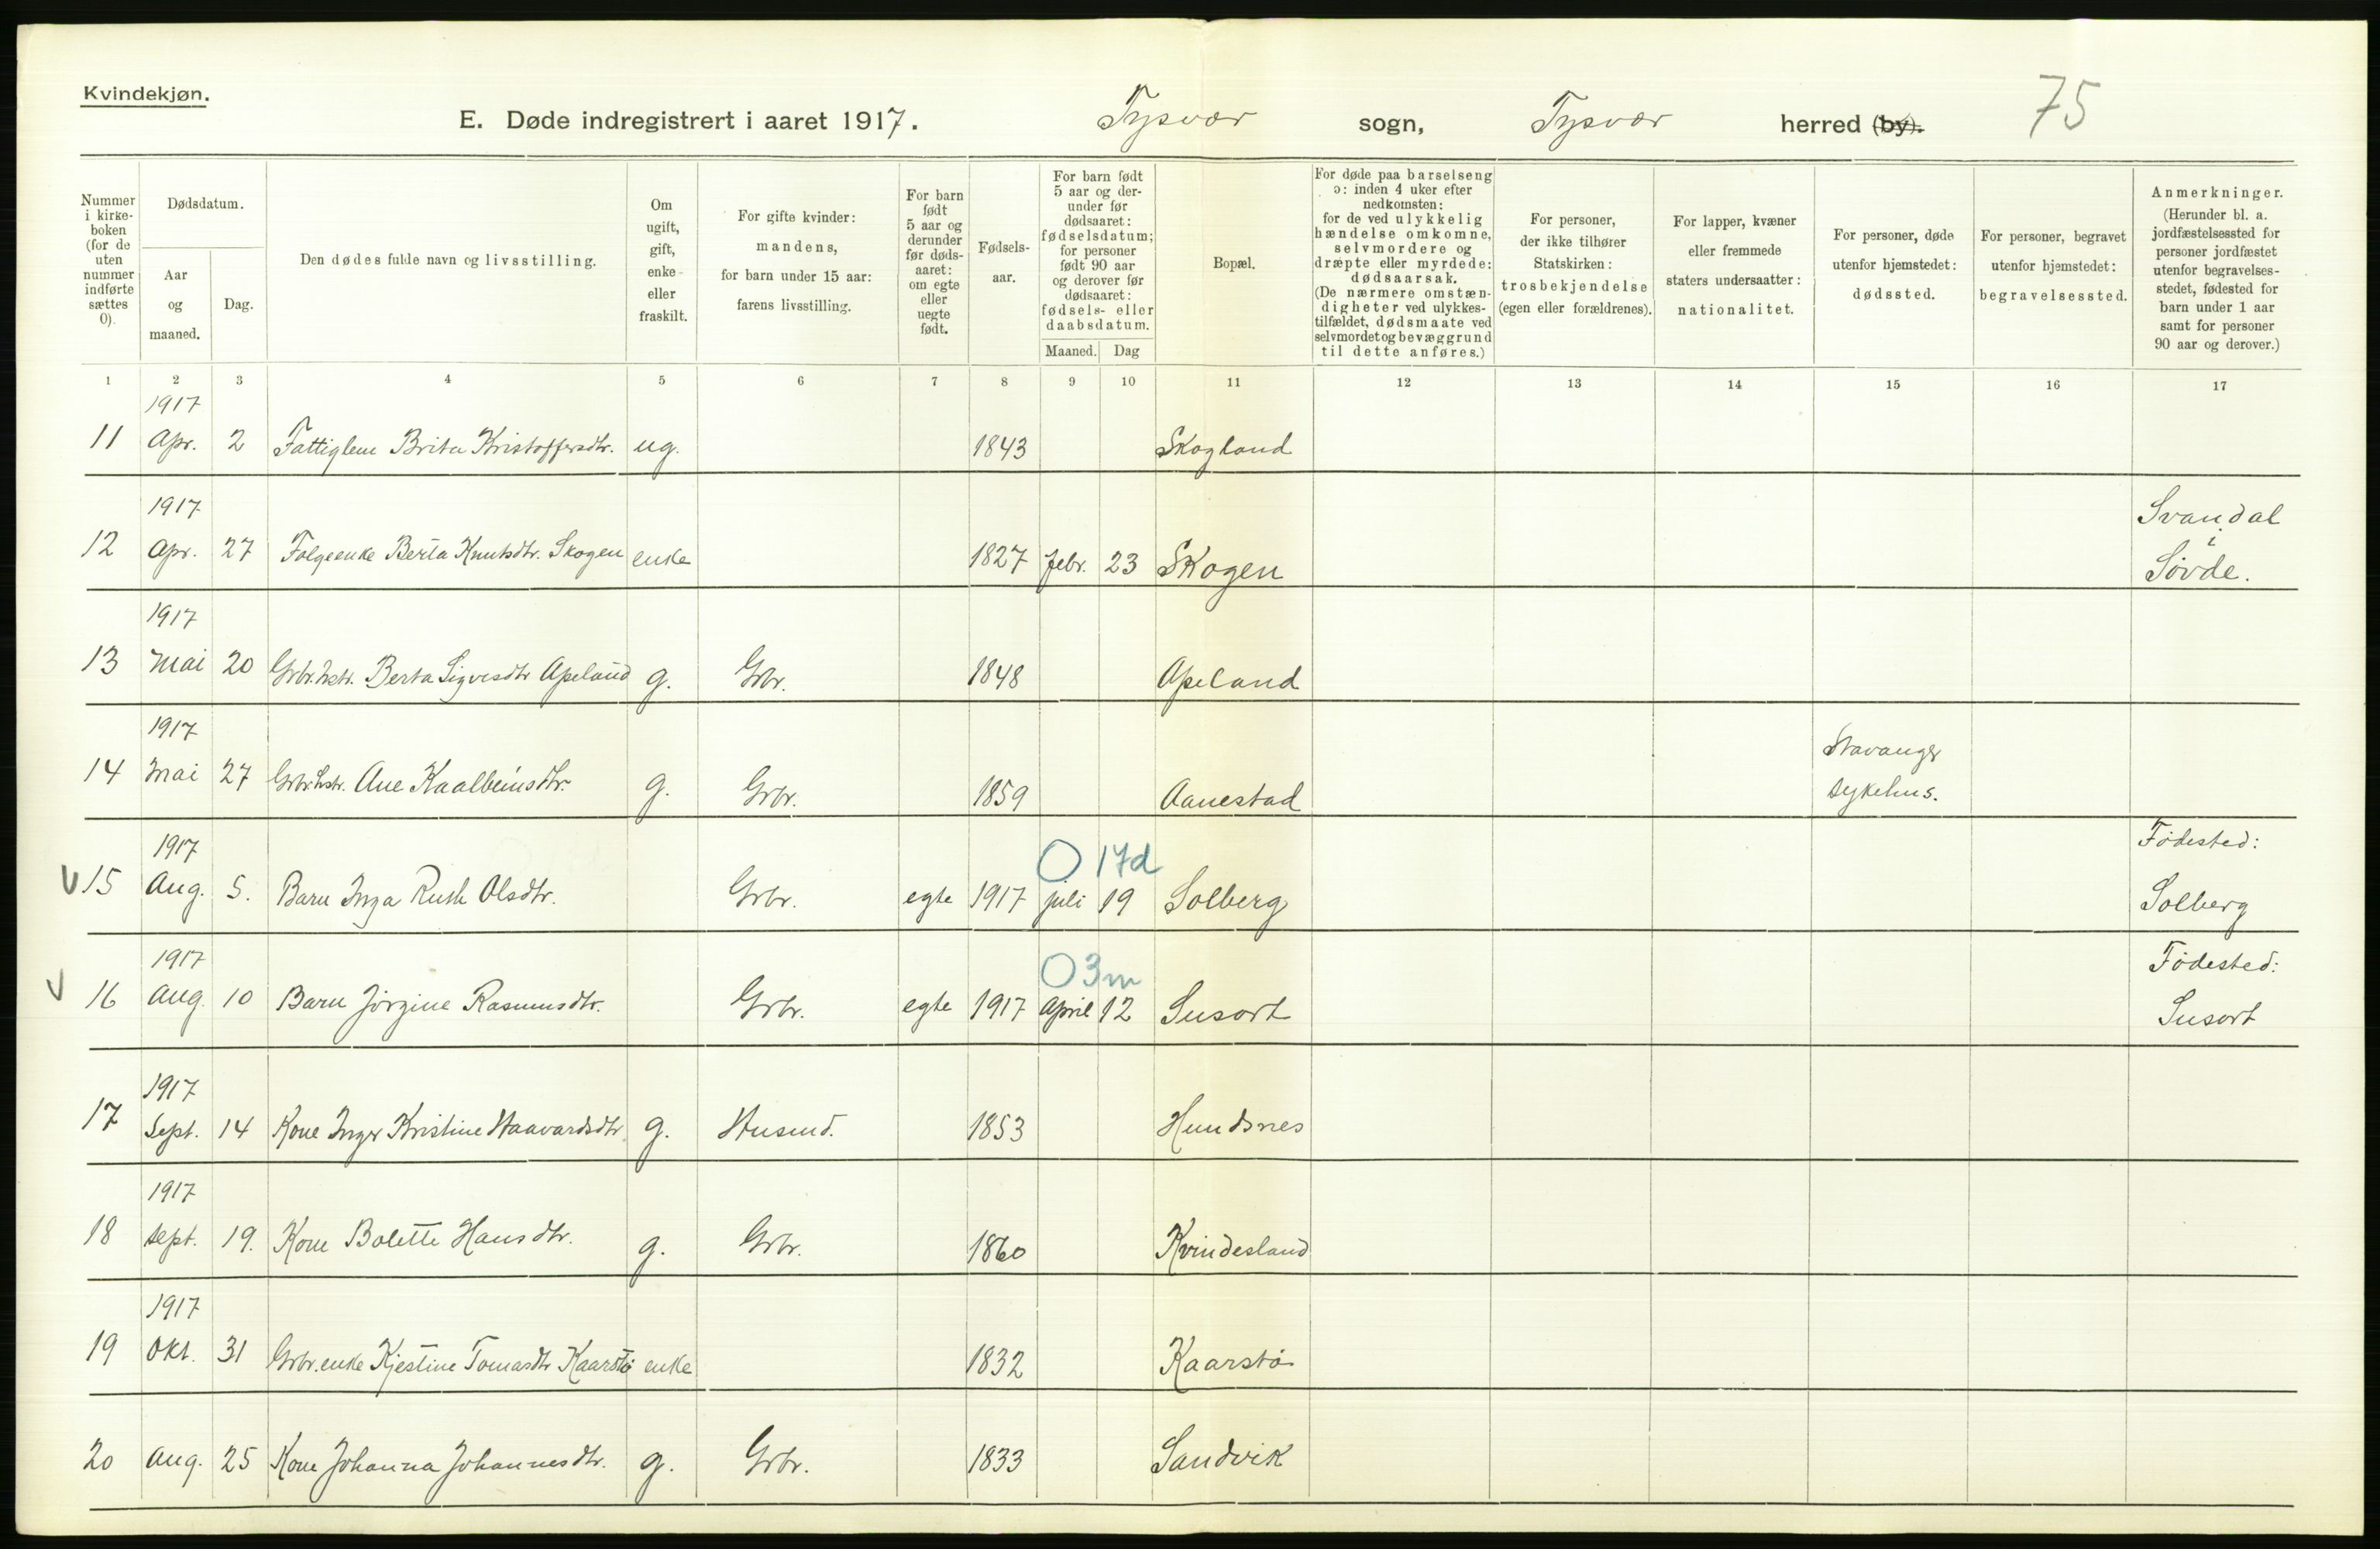 Kvindekjøn.
E. Døde indregistrert i aaret 1917. Tysvær sogn, Tysvær herred (by). 75
Nummer i kirke- boken (for de uten nummer indførte sættes 0).
Dødsdatum.
Aar og maaned.
Dag.
Den dødes fulde navn og livsstilling.
Om ugift, gift, enke eller fraskilt.
For gifte kvinder: mandens, for barn under 15 aar: farens livsstilling.
For barn født 5 aar og derunder før døds- aaret: om egte eller uegte født.
Fødsels- aar.
For barn født 5 aar og der- under før dødsaaret: fødselsdatum; for personer født 90 aar og derover før dødsaaret: fødsels- eller daabsdatum.
Maaned. Dag
Bopæl.
For døde paa barselseng ɔ: inden 4 uker efter nedkomsten: for de ved ulykkelig hændelse omkomne, selvmordere og dræpte eller myrdede: dødsaarsak. (De nærmere omstæn- digheter ved ulykkes- tilfældet, dødsmaate ved selvmordet og bevæggrund til dette anføres.)
For personer, der ikke tilhører Statskirken: trosbekjendelse (egen eller forældrenes).
For lapper, kvæner eller fremmede staters undersaatter: nationalitet.
For personer, døde utenfor hjemstedet: dødssted.
For personer, begravet utenfor hjemstedet: begravelsessted.
Anmerkninger. (Herunder bl. a. jordfæstelsessted for personer jordfæstet utenfor begravelses- stedet, fødested for barn under 1 aar samt for personer 90 aar og derover.)
1 2 3 4 5 6 7 8 9 10 11 12 13 14 15 16 17
1917
11 Apr. 2 Fattiglem Brita Kristoffersdtr. ug. 1843 Skogland
1917 Svandal
12 Apr. 27 Folgeenke Berta Knutsdtr. Skogen enke 1827 febr. 23 Skogen i Søvde.
1917
13 Mai 20 Grbr.hstr. Berta Sigvesdtr Apeland g. Grbr. 1848 Apeland
1917 Stavanger
14 Mai 27 Grbr.hstr. Ane Kaalbeinsdtr. g. Grbr. 1859 Aanestad sykehus.
1917 0 17d Fødested:
V 15 Aug. 5. Barn Inga Ruth Olsdtr. Grbr. egte 1917 juli 19 Solberg Solberg
1917 0 3m Fødested:
V 16 Aug. 10 Barn Jørgine Rasmusdtr. Grbr. egte 1917 April 12 Susort Susort
1917
17 Sept. 14 Kone Inger Kristine Haavardsdtr g. Husmd. 1853 Hundsnes
1917
18 Sept. 19. Kone Bolette Hansdtr. g. Grbr. 1860 Kvindesland
1917
19 Okt. 31 Grbr.enke Kjestine Tomasdtr Kaarstø enke 1832 Kaarstø
20 Aug. 25 Kone Johanna Johannesdtr. g. Grbr. 1833 Sandvik